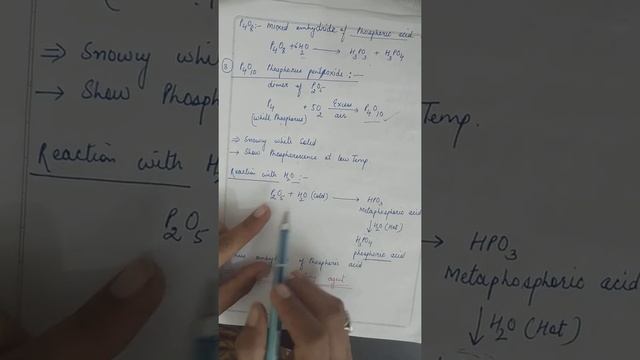 P4O8:- Mixed anhydride of Phosphoric acid
P4O8 + 6H2O → H3PO3 + H3PO4
③ P4O10 Phosphorus pentoxide :-
dimer of P2O5
P4 + 5O2 Excess air → P4O10
(White Phosphorus)
⇒ Snowy white Solid
→ Show Phosphorescence at low Temp.
Reaction with H2O :-
P2O5 + H2O (Cold) → HPO3
Metaphosphoric acid
↓ H2O (Hot)
H3PO4
phosphoric acid
of Phosphoric acid
agent
⇒ Snowy white
→ Show Phosph
Reaction with H
P2O5
Temp.
→ HPO3
Metaphosphoric acid
↓ H2O (Hot)